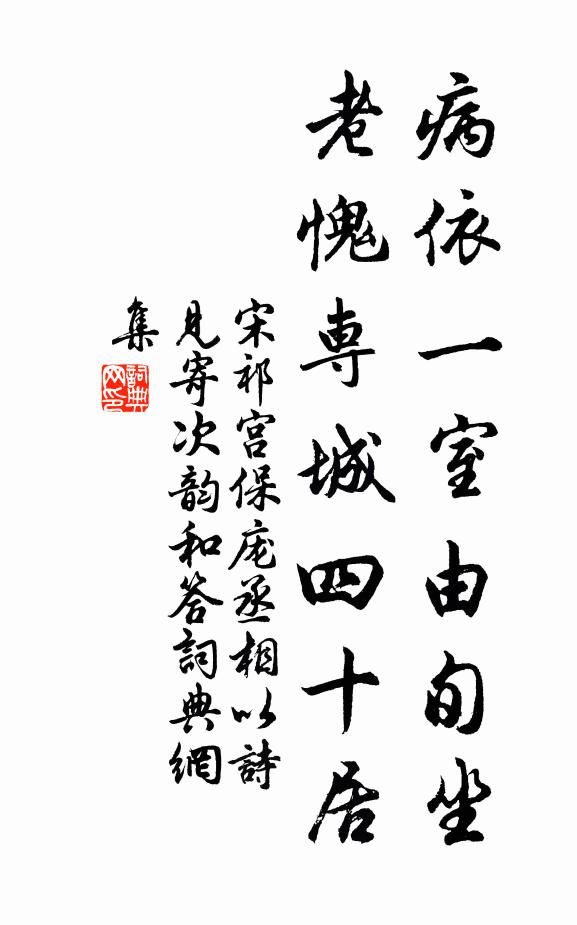 病依一室由旬坐
老愧専城四十居
宋祁宫保庞丞相以詩
見寄次韵和答詞典網
集
詞典
网印